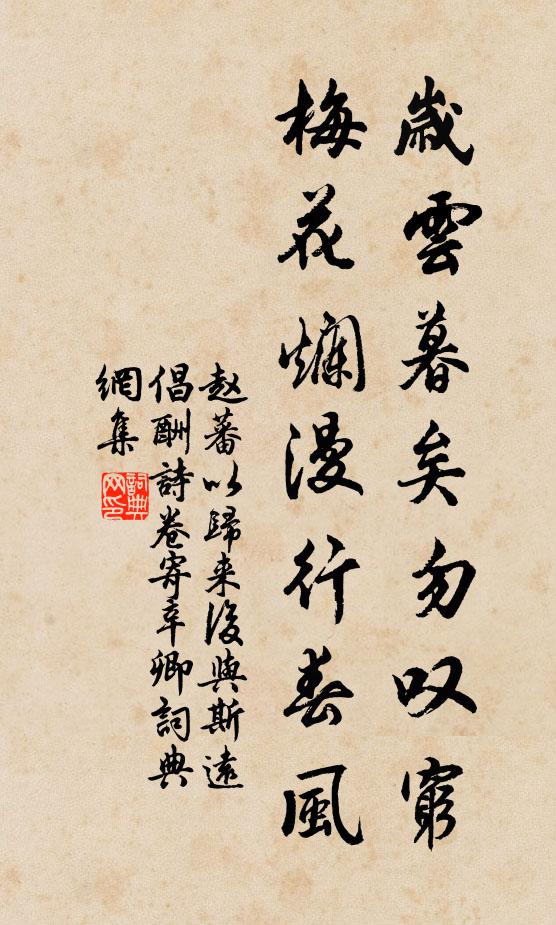 歲雲暮矣勿叹窮
梅花爛漫行春風
赵蕃以歸来後與斯遠
倡酬詩卷寄辛卿詞典
網集
詞典
网印